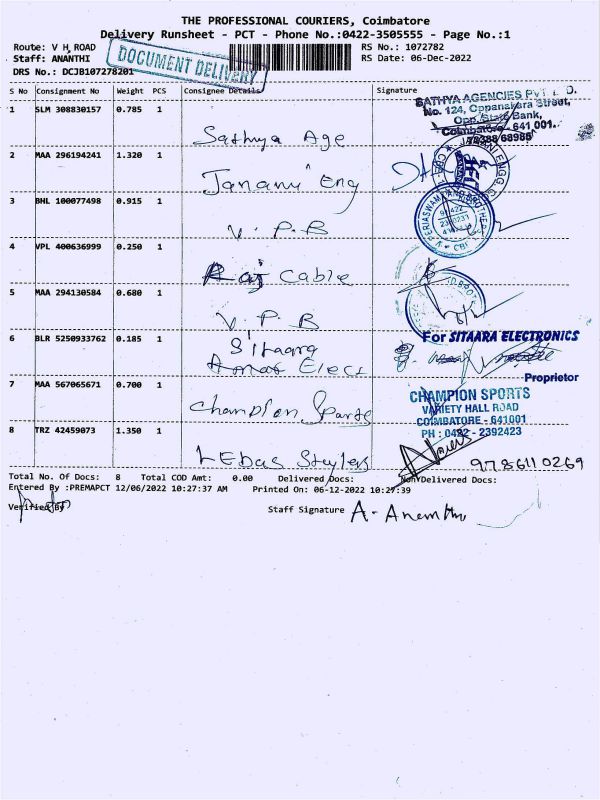 THE PROFESSIONAL COURIERS, Coimbatore
Delivery Runsheet - PCT - Phone No.:0422-3505555 - Page No.:1
Route: V H ROAD
Staff: ANANTHI
DRS No.: DCJB107278201
DOCUMENT DELIVERY
RS No.: 1072782
RS Date: 06-Dec-2022
S No Consignment No Weight PCS Consignee Details Signature
1 SLM 308830157 0.785 1
Sathya Age
SATHYA AGENCIES PVT L D.
No. 124, Oppanakara Street,
Opp. State Bank,
Coimbatore - 641 001.
2 MAA 296194241 1.320 1
Janani Eng
3 BHL 100077498 0.915 1
V. P. B
V. PERIASWAMY AND BROTHER
CBE
4 VPL 400636999 0.250 1
Raj Cable
5 MAA 294130584 0.680 1
V. P. B
6 BLR 5250933762 0.185 1
Sitaara
Elect
For SITAARA ELECTRONICS
Proprietor
7 MAA 567065671 0.700 1
Champion Sports
CHAMPION SPORTS
VARIETY HALL ROAD
COIMBATORE - 641001
PH : 0422 - 2392423
8 TRZ 42459073 1.350 1
LEbas Stylers
9786110269
Total No. Of Docs: 8 Total COD Amt: 0.00 Delivered Docs: NonYDelivered Docs:
Entered By :PREMAPCT 12/06/2022 10:27:37 AM Printed On: 06-12-2022 10:27:39
Verified By
Staff Signature A. Ananthi